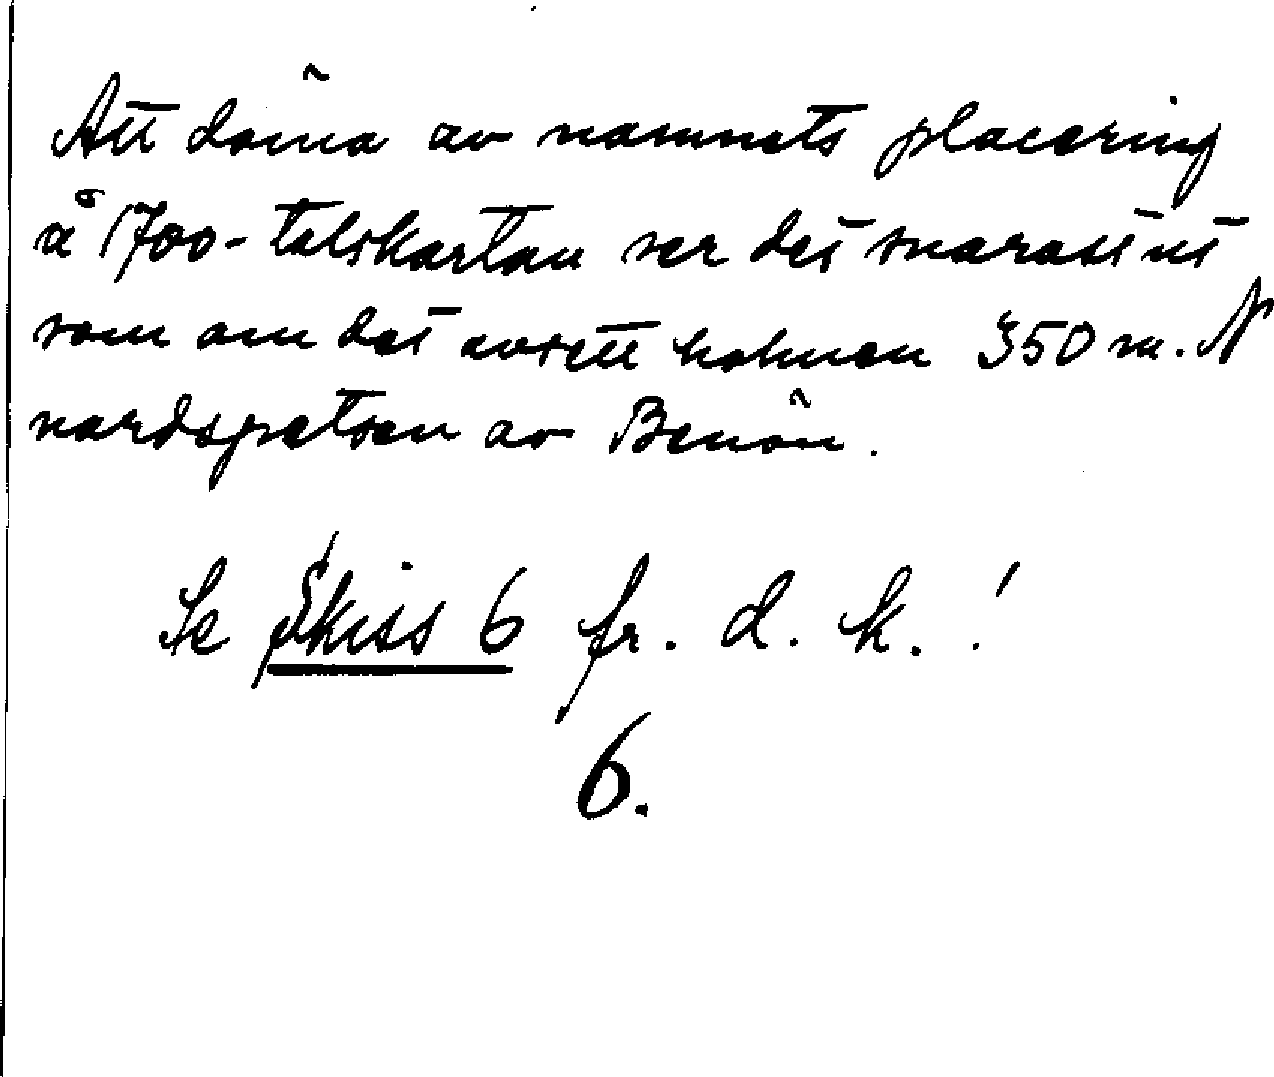 Att döma av namnets placering
å 1700-talskartan ser det snarast ut
som om det avsett holmen 350 m. N
nordspetsen av Benön.
Se Skiss 6 fr. d. k.!
6.